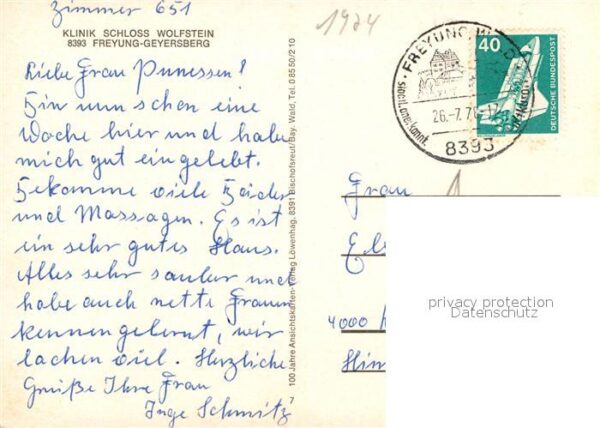 Zimmer 651
KLINIK SCHLOSS WOLFSTEIN
8393 FREYUNG-GEYERSBERG
Liebe Frau
Bin nun schon eine
Woche hier und habe
mich gut eingelebt.
Bekomme viele Bäder
und Massagen. Es ist
ein sehr gutes Haus.
Alles sehr sauber und
habe auch nette Frauen
kennengelernt, wir
lachen viel. Herzliche
Grüße Ihre Frau
Inge Schmitz
100 Jahre Ansichtskarten-Verlag Löwenhag, 8391 Bischofsreut/Bay. Wald, Tel. 08550/210
7
1974
FREYUNG
26.-7.76-17
8393
40
DEUTSCHE BUNDESPOST
1
Frau
4000
privacy protection
Datenschutz